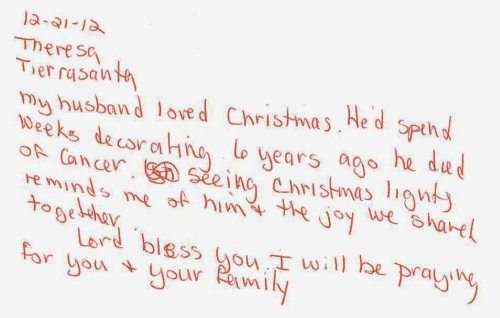 12-21-12
Theresa
Tierrasanta
my husband loved Christmas. He'd spend
Weeks decorating. 6 years ago he died
of Cancer. seeing Christmas lights
reminds me of him & the joy we shared
together.
Lord bless you. I will be praying
for you & your family